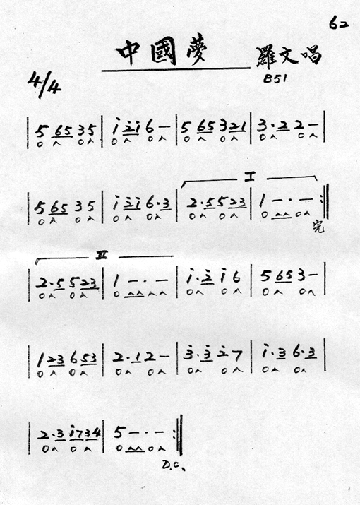 62
中國夢 羅文唱
4/4 B51
| 5 65 35 | i 2i 6 - | 5 65 321 | 3·2 2 - |
I
| 5 65 35 | i 2i 6·3 | 2·5 523 | 1 - · - :||
完
II
| 2·5 523 | 1 - · - | i·2 i 6 | 5 65 3 - |
| 123 653 | 2·12 - | 3·3 27 | i·3 6·3 |
| 2·3 i734 | 5 - · - :||
D.C.